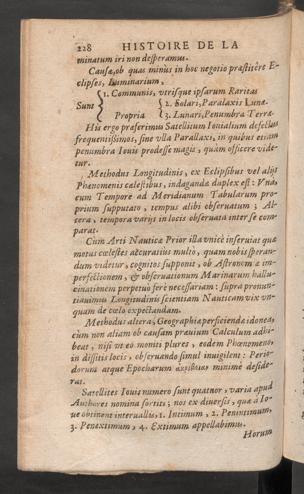 228 HISTOIRE DE LA
minatum iri non desperamus.
Causæ, ob quas minùs in hoc negotio præstitêre E-
clipses, Luminarium,
1. Communis, utrisque ipsarum Raritas
Sunt 2. Solari, Paralaxis Lunæ.
Propria 3. Lunari, Penumbra Terræ.
His ergo præferimus Satellitum Iovialium defectus
frequentissimos, sine ulla Parallaxi, in quibus etiam
penumbra Iovis prodesse magis, quàm officere vide-
tur.
Methodus Longitudinis, ex Eclipsibus vel aliis
Phænomenis cælestibus, indagandæ duplex est: Una,
cum Tempore ad Meridianum Tabularum pro-
prium supputato, tempus alibi observatum; Al-
tera, tempora variis in locis observata inter se com-
parat.
Cum Arti Nauticæ Prior illa unicè inserviat quæ
motus cælestes accuratius multò, quam nobis speran-
dum videtur, cognitos supponit, ob Astronomiæ im-
perfectionem, & observationum Marinarum hallu-
cinationem perpetuò ferè necessariam: supra pronun-
tiavimus Longitudinis scientiam Nauticam vix un-
quam de cœlo expectandam.
Methodus altera, Geographiæ perficiendæ idonea,
cùm non aliam ob causam prævium Calculum adhi-
beat, nisi ut eo moniti plures, eodem Phænomeno,
in dissitis locis, observando simul invigilent: Perio-
dorum atque Epocharum ἀκρίβειαν minimè deside-
rat.
Satellites Iovis numero sunt quatuor, varia apud
Authores nomina sortiti; nos ex diversis, quæ à Io-
ve obtinent intervallis, 1. Intimum, 2. Penintimum,
3. Penextimum, 4. Extimum appellabimus.
Horum